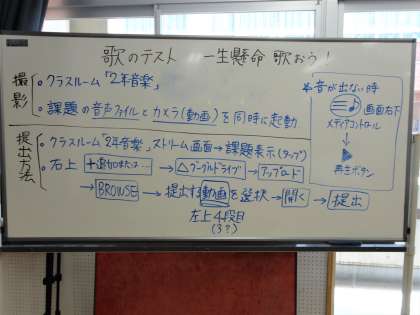 歌のテスト 一生懸命 歌おう!
撮影
・クラスルーム「2年音楽」
・課題の音声ファイルとカメラ(動画)を同時に起動
音が出ない時
画面右下
メディアコントロール
再生ボタン
提出方法
・クラスルーム「2年音楽」ストリーム画面→課題表示(タップ)
・右上 +追加または… → △グーグルドライブ → アップロード
→ BROWSE → 提出する動画を選択 → 開く → 提出
左上4段目
(3?)